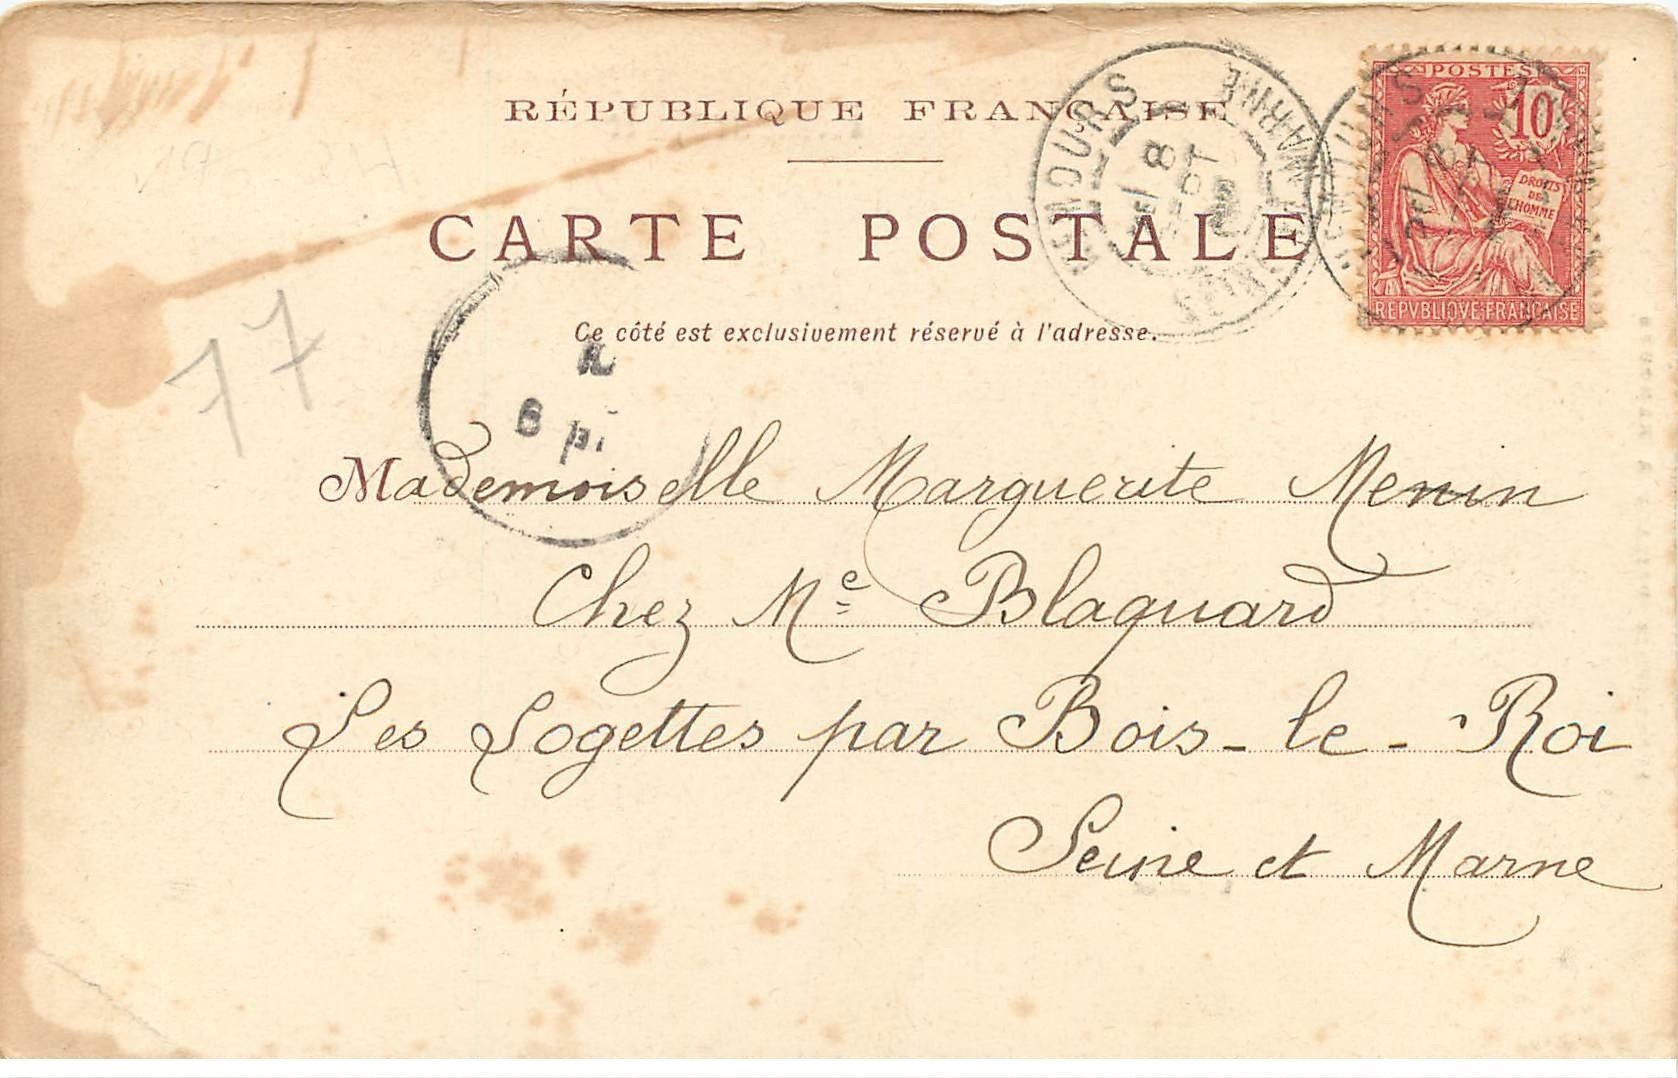 RÉPUBLIQUE FRANÇAISE
CARTE POSTALE
Ce côté est exclusivement réservé à l'adresse.
POSTES
10
DROITS
DE
L'HOMME
REPVBLIQVE FRANÇAISE
NEMOURS
SEINE ET MARNE
77
6
Mademoiselle Marguerite Menin
Chez Me Blaguard
Les Logettes par Bois-le-Roi
Seine et Marne